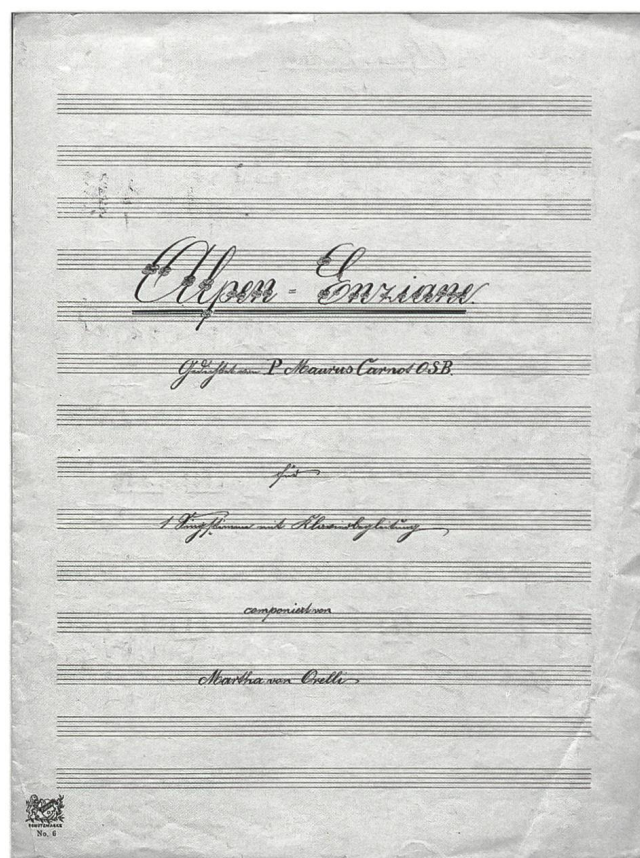 Alpen - Enziane.
Gedichtet von P Maurus Carnot O.S.B.
für
1 Singstimme mit Klavierbegleitung
componiert von
Martha von Orelli
SCHUTZMARKE
No. 6